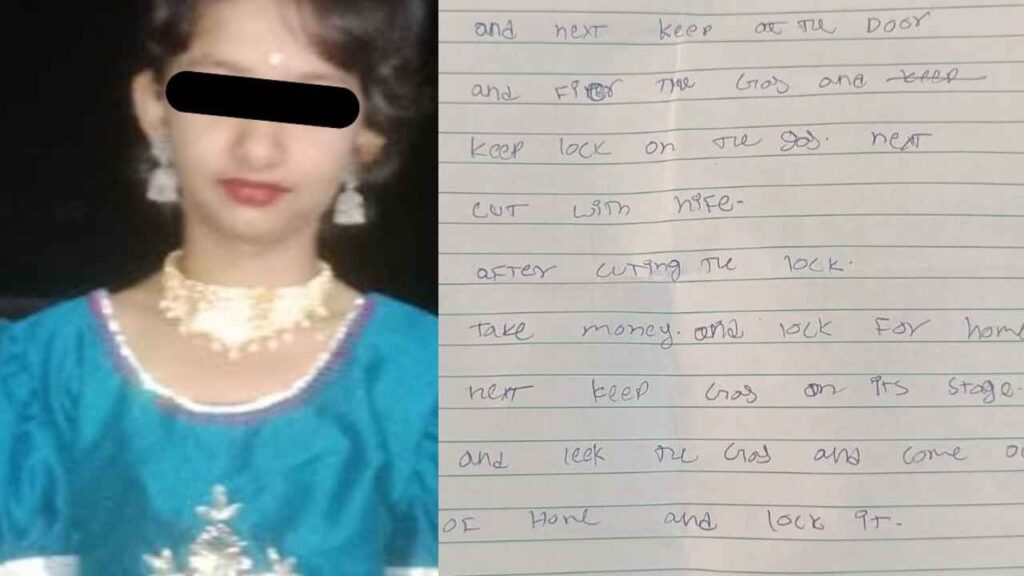 and next keep at the Door
and Fier the Gas and keep
keep lock on the gas. next
cut with nife.
after cuting the lock.
take money. and lock for home
next keep Gas on its stage.
and leek the Gas and come o
of Home and lock it.